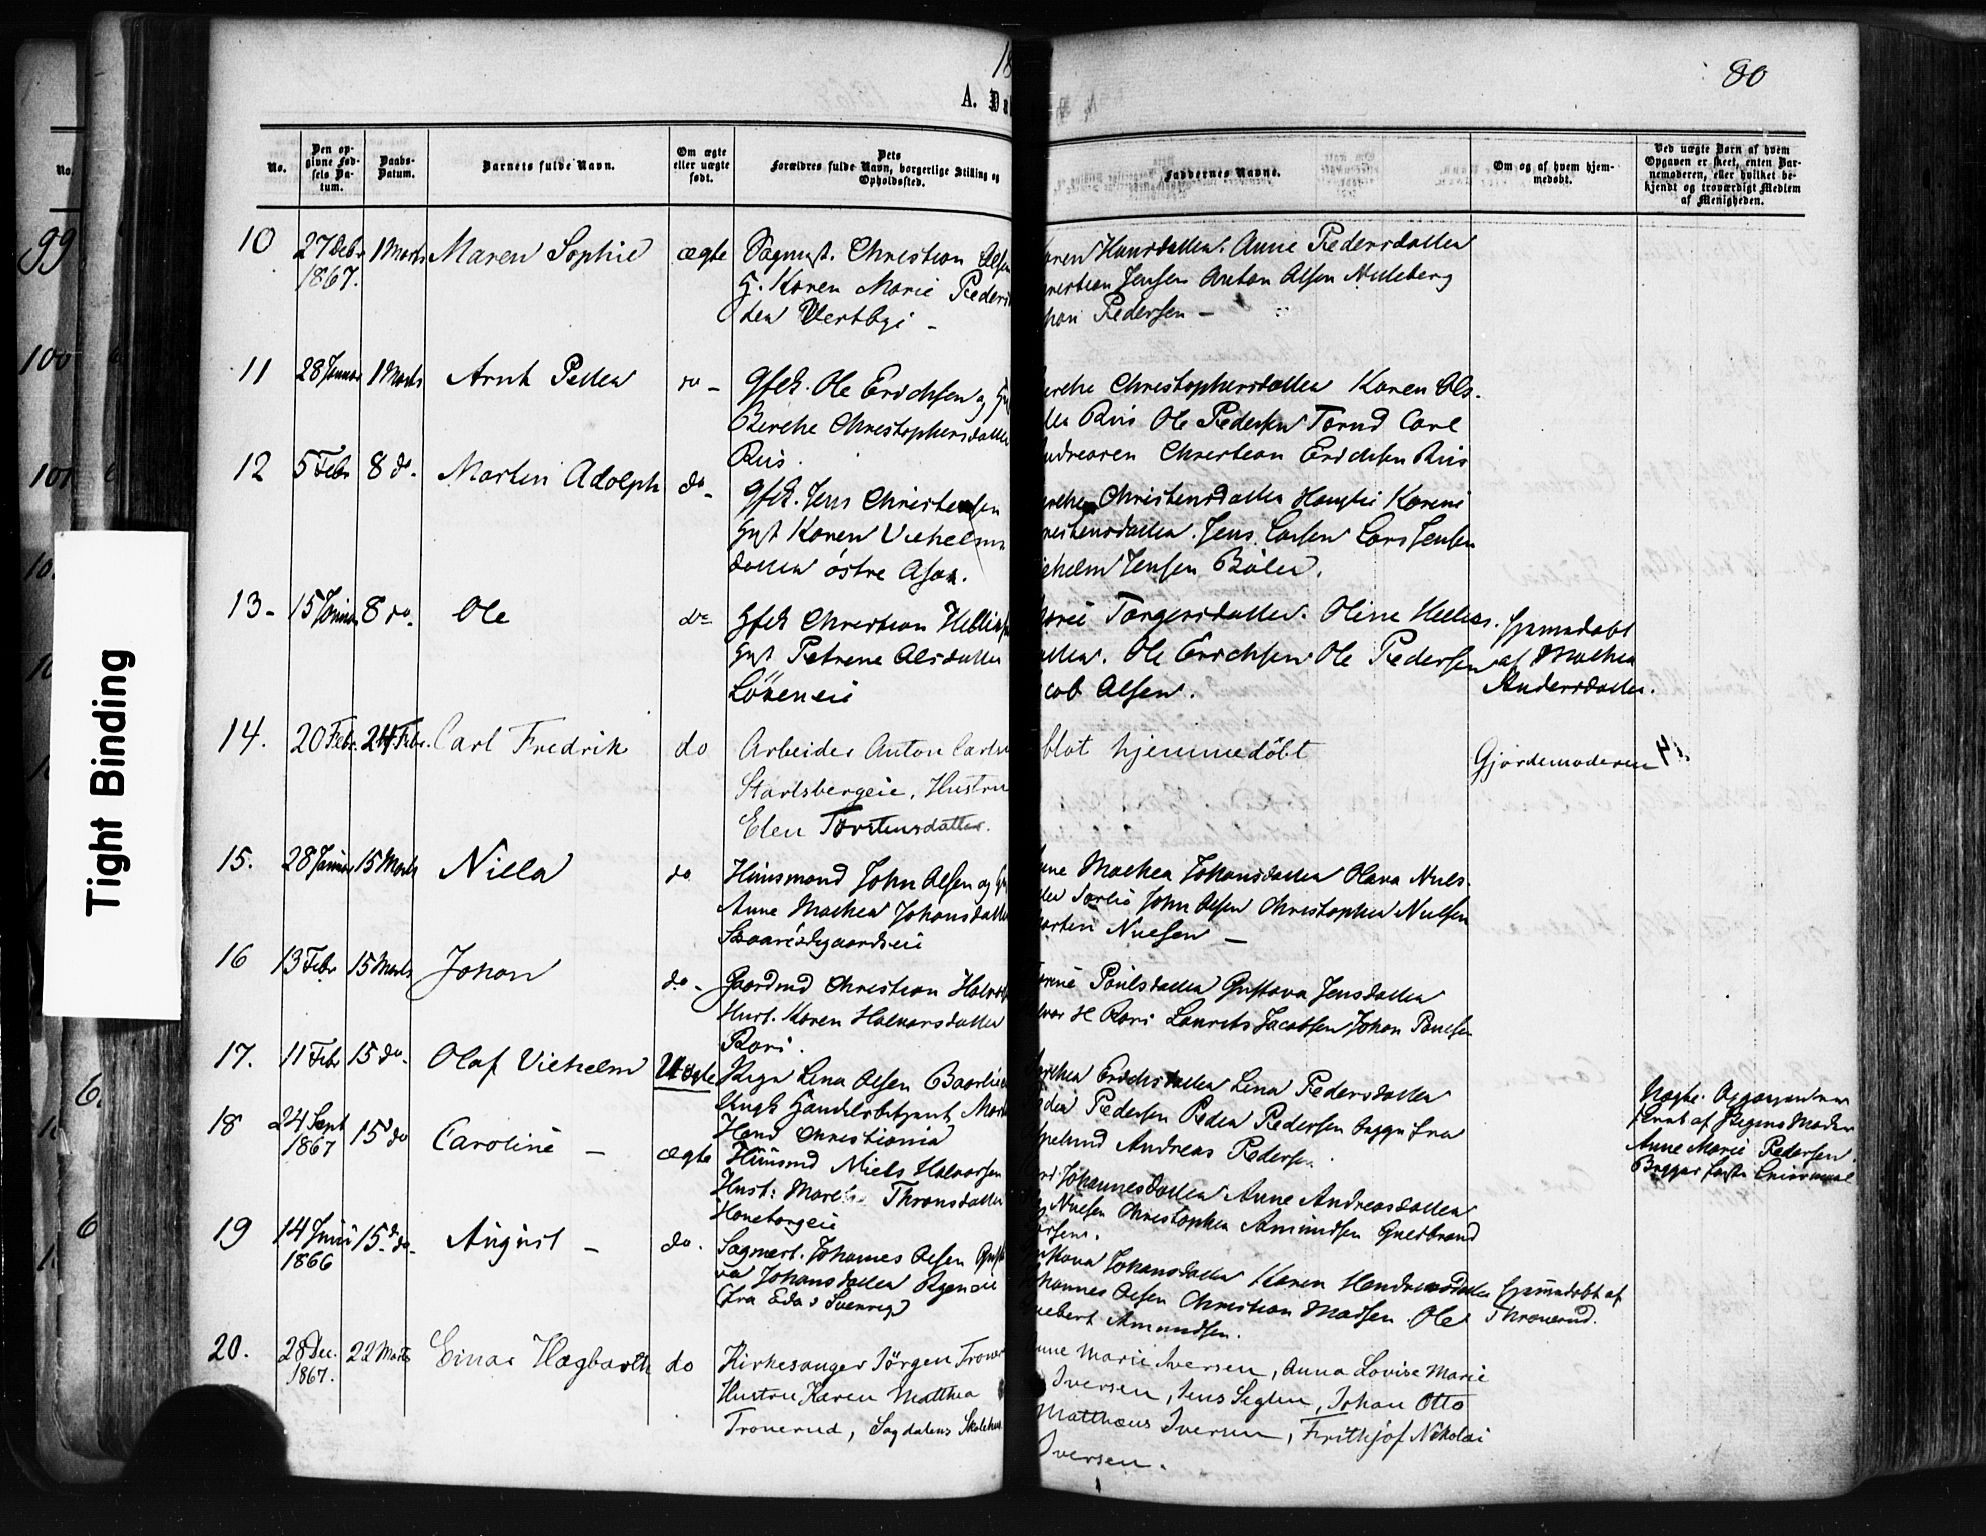 80
18
A. Da
No.
Den op-
givne Fød-
sels Da-
tum.
Daabs-
Datum.
Barnets fulde Navn.
Om ægte
eller uægte
født.
Dets
Forældres fulde Navn, borgerlige Stilling og
Opholdssted.
Faddernes Navne.
Om og af hvem hjem-
medøbt.
Ved uægte Børn af hvem
Opgaven er skeet, enten Bar-
nemoderen, eller hvilket be-
kjendt og troværdigt Medlem
af Menigheden.
No.
99
100
101
Tight Binding
10 27 Debr 1867. 1 Marts Maren Sophie ægte
Sagmst. Christian Olsen
H. Karen Marie Peders
Vertbyi -
aren Hansdatter. Anne Pedersdatter
hristian Jensen Anton Olsen Nuleberg
han Pedersen -
11 28 Januar 1 Marts Arnt Petter do -
Gfbr. Ole Erichsen og Hu
Berthe Christophersdatter
Riis.
erthe Christophersdatter Karen Ols-
tter Riis Ole Pedersen Torud Carl
Andreasen Christian Erichsen Riis
12 5 Febr 8 do. Martin Adolph do -
Gfbr. Jens Christensen
Hust Karen Vilhelms
datter østre Asak.
erthe Christensdatter Haugtie Karine
ristensdatter. Jens Larsen Lars Jensen
ilhelm Jensen Bøler.
13 - 15 Januar 8 do. Ole do
Gfbr Christian
Hust Petrene Olsdatter
Lökeneie
Marie Torgersdatter. Oline
atter. Ole Erichsen Ole Pedersen
acob Olsen.
Hjemmedøbt
af Mathea
Andersdatter.
14. 20 Febr. 24 Febr. Carl Fredrik do
Arbeider Anton Carls
Starlsbergeie, Hustru
Elen Torstensdatter.
blot hjemmedöbt
Gjordemoderen
15. 28 Januar 15 Marts Nilla do
Huusmand John Olsen og Hu
Anne Mathea Johansdatter
nne Mathea Johansdatter Olava Niels-
tter Sørlie John Olsen Christopher Nielsen
artin Nielsen -
16 13 Febr 15 Marts Johan do -
Gaardmd Christian Halvors
Hust. Karen Halvorsdatter
Rari.
arine Paulsdatter Gustava Jensdatter
lvor H Rari Laurits Jacobsen Johan Paulsen
17. 11 Febr 15 do. Olaf Vilhelm Uægte
Pige Lina Olsen Baarlie
Ungk Handelsbetjent Mart
Christiania
arthea Erichsdatter Lina Pedersdatter
eder Pedersen Peder Pedersen Bagger fra
Andreas Pedersen.
Uægte.
født af Pigens Moder
Anne Marie Pedersen.
18 24 Sept 1867 15 do Caroline - ægte
Huusmd Niels Halvorsen
Hust: Marthe Thronsdatter
Johannesdatter Anne Andreasdatter
Nielsen Christopher Amundsen Gulbrand
arsen.
19 14 Juni 1866 15 do - August - do.
Sagmest. Johannes Olsen Gust
va Johansdatter
(fra Eda i Sverrig)
ustava Johansdatter Karen Hendrensdatter
ohannes Olsen Christian Madsen. Ole
lebert Amundsen.
Hjemmedøbt af
Thronerud.
20. 28 Dec. 1867. 22 Marts Einar Hagbarth do
Kirkesanger Jörgen Trone
Hustru Karen Matthea
Tronerud, Sagdalens Skolehus
nne Marie Iversen, Anna Lovise Marie
Iversen, Jens Seglen, Johan Otto
Matthæus Iversen, Frithjof Nikolai
Iversen.